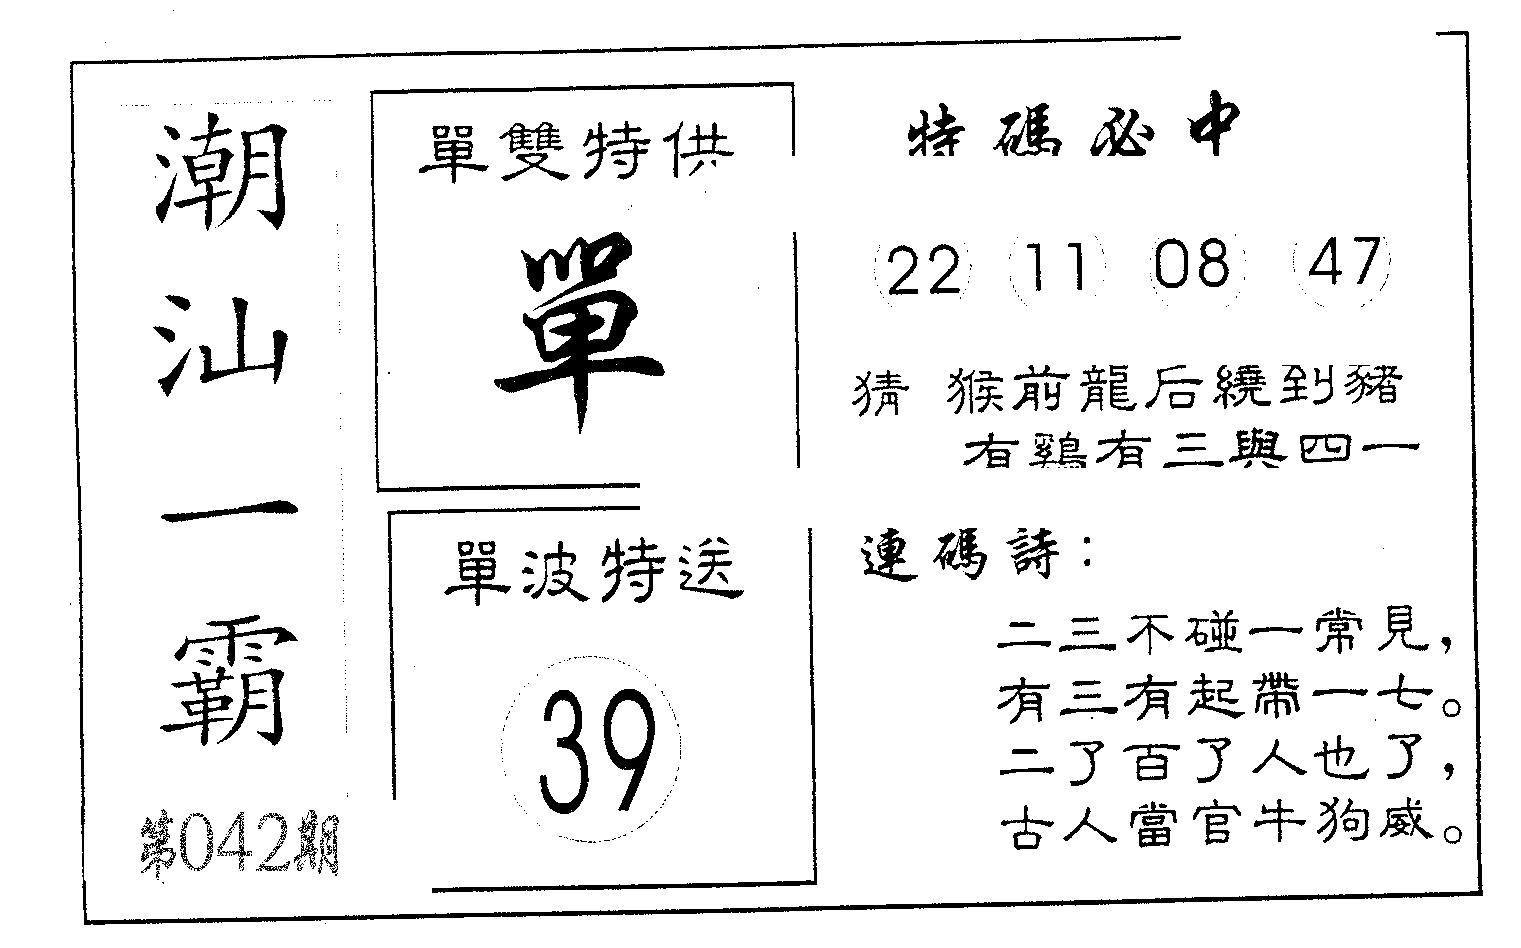 潮汕一霸
第042期
單雙特供
單
單波特送
39
特碼必中
22 11 08 47
猜 猴前龍后繞到豬
有鷄有三與四一
連碼詩：
二三不碰一常見，
有三有起帶一七。
二了百了人也了，
古人當官牛狗威。